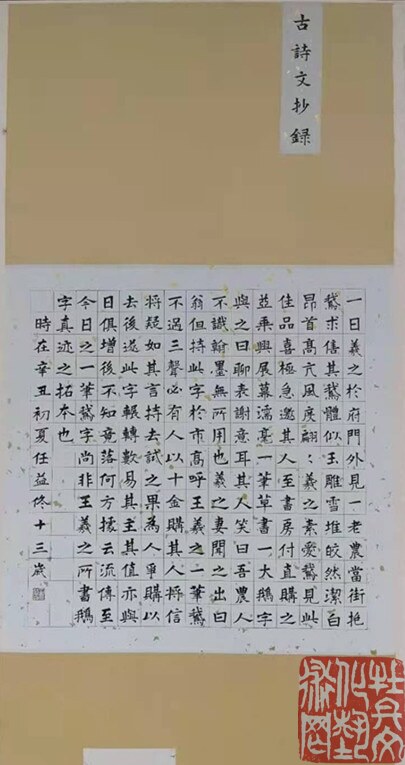 古詩文抄錄
一日羲之於府門外見一老農當街抱
鵞求售其鵞體似玉雕雪堆皎然潔白
昂首高亢風度翩々羲之素愛鵞見此
佳品喜極急邀其人至書房付直購之
並乘興展幕濡毫一筆草書一大鵝字
與之曰聊表謝意耳其人笑曰吾農人
不識翰墨無所用也羲之妻聞之出曰
翁但持此字於市高呼王羲之一筆鵞
不過三聲必有人以十金購其人將信
將疑如其言持去試之果為人爭購以
去後遂此字輾轉數易其主其值亦與
日俱增後不知竟落何方據云流傳至
今日之一筆鵞字尚非王羲之所書鵝
字真迹之拓本也
時在辛丑初夏任益佟十三歲